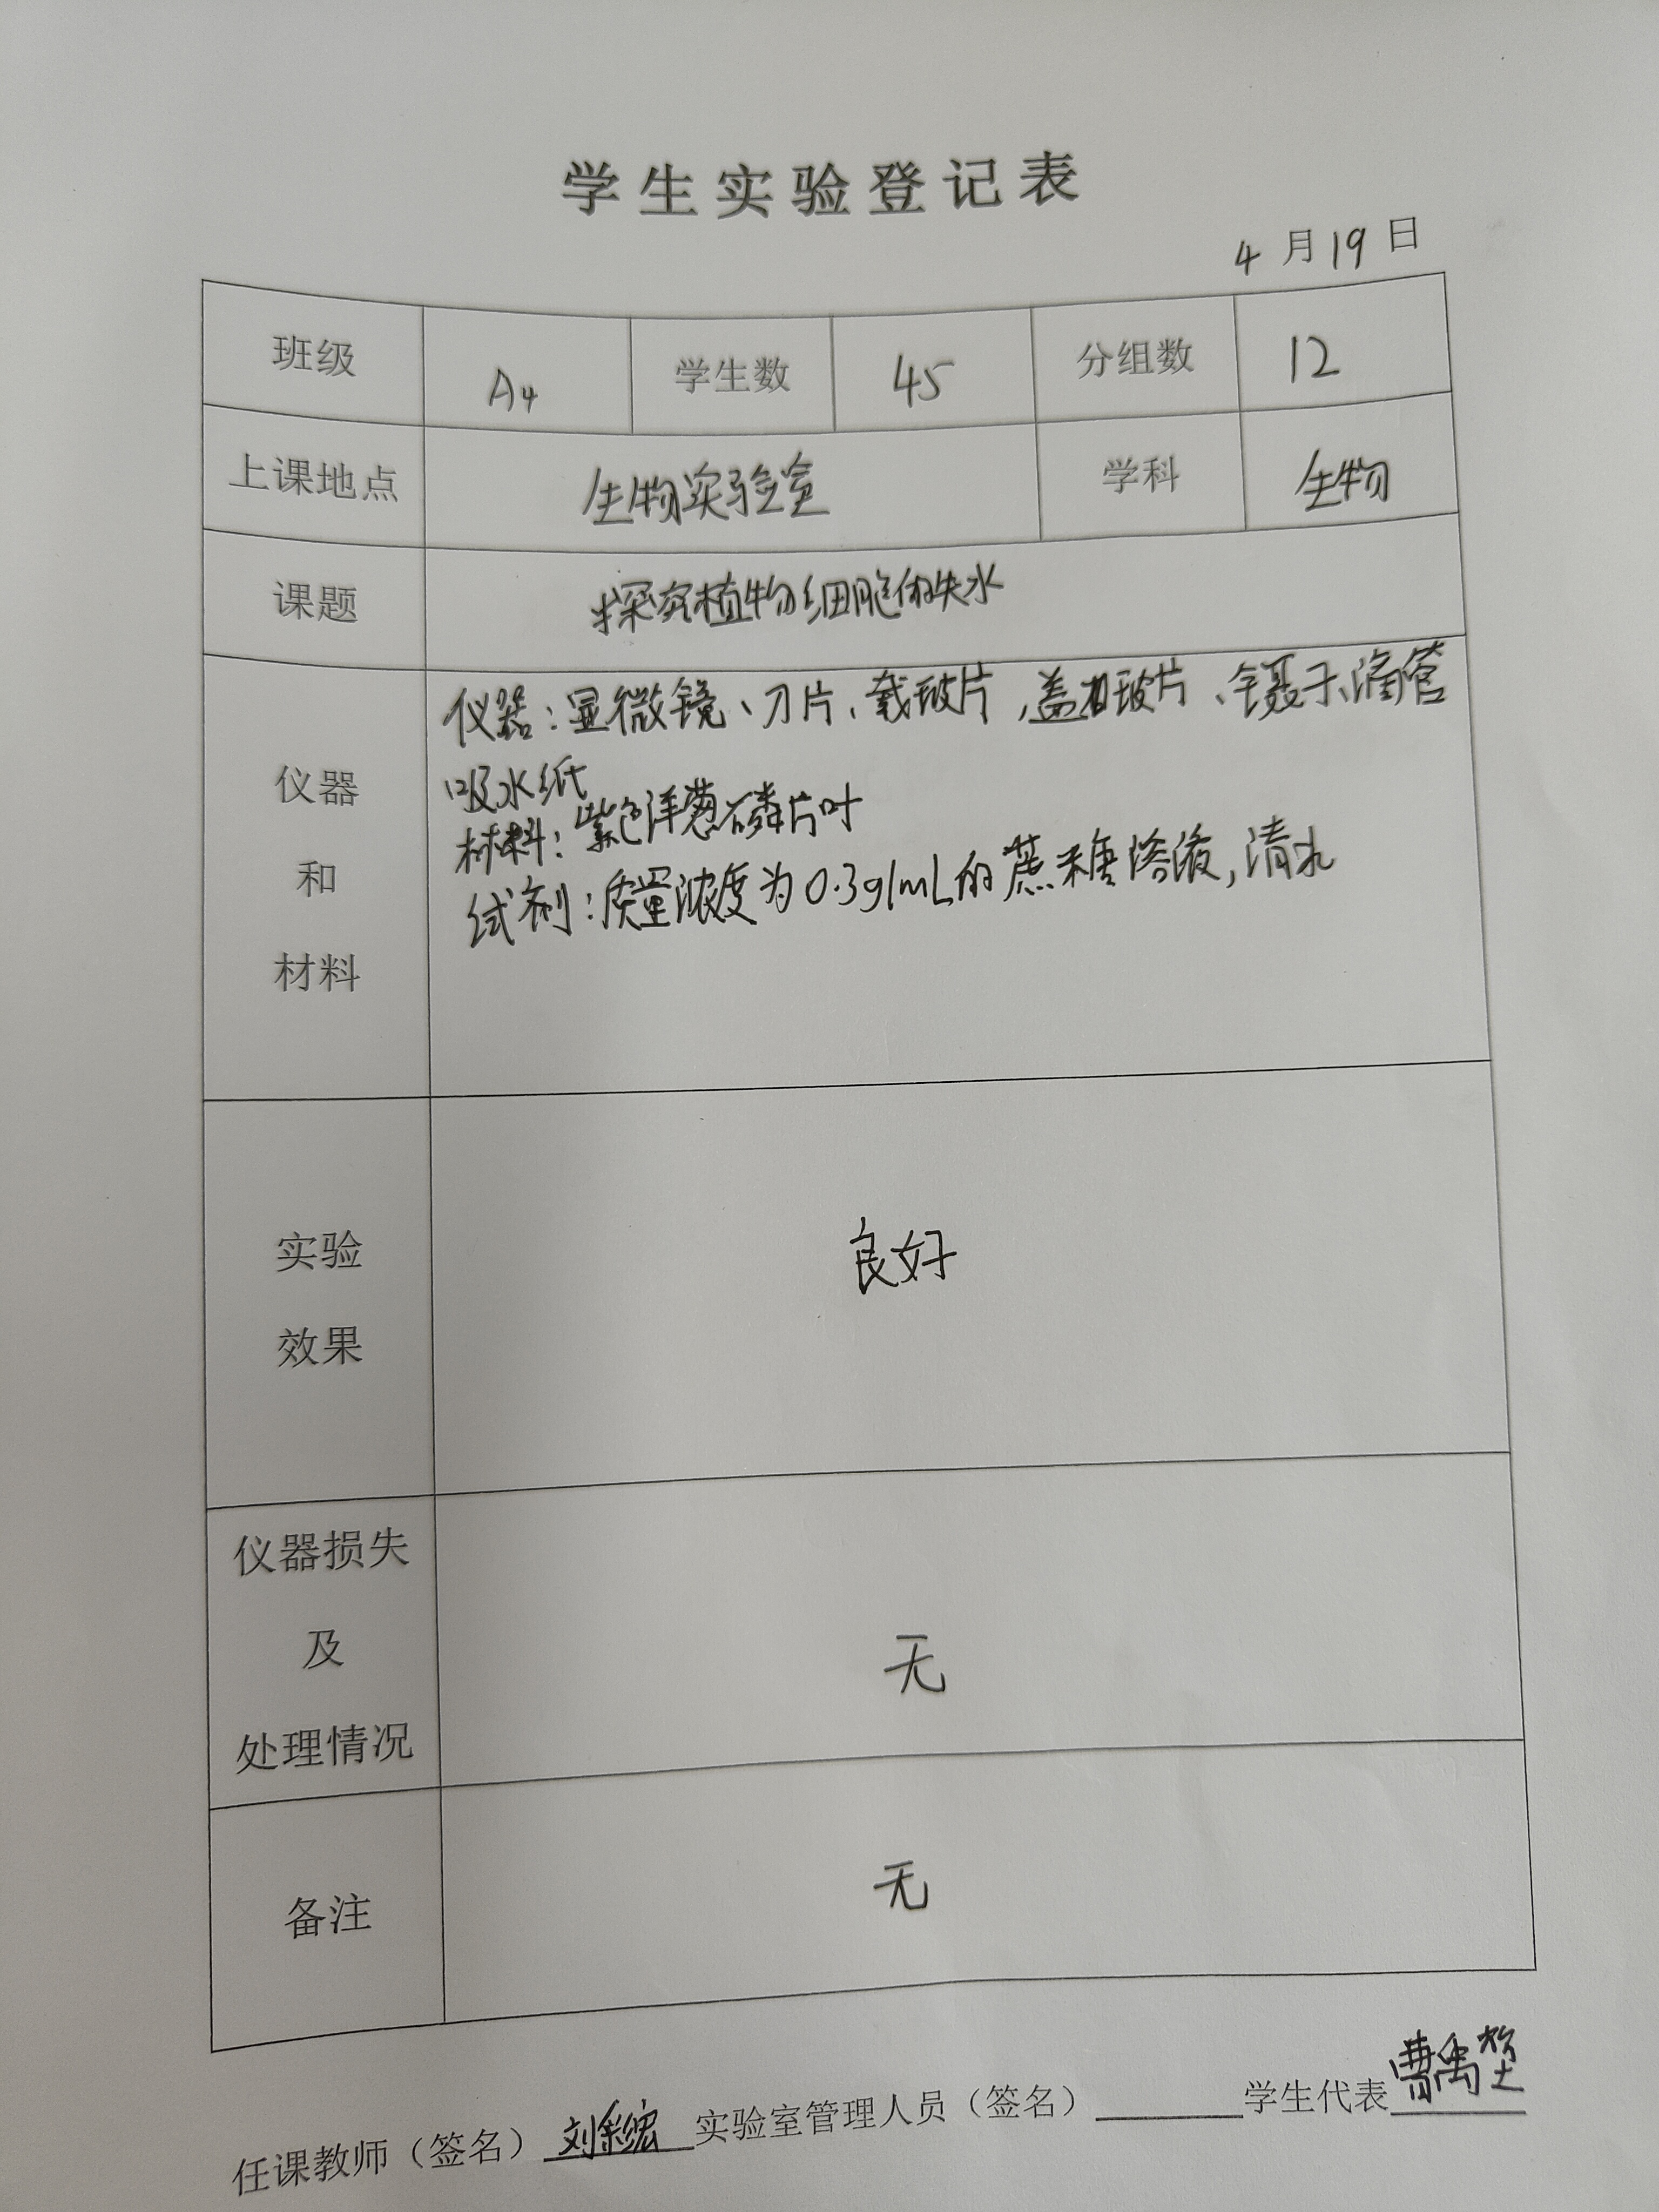 学生实验登记表
4月19日
班级 A4 学生数 45 分组数 12
上课地点 生物实验室 学科 生物
课题 探究植物细胞的失水
仪器和材料
仪器：显微镜、刀片、载玻片，盖玻片、镊子、滴管
吸水纸
材料：紫色洋葱磷片叶
试剂：质量浓度为0.3g/mL的蔗糖溶液，清水
实验效果 良好
仪器损失及处理情况 无
备注 无
任课教师（签名） 实验室管理人员（签名） 学生代表